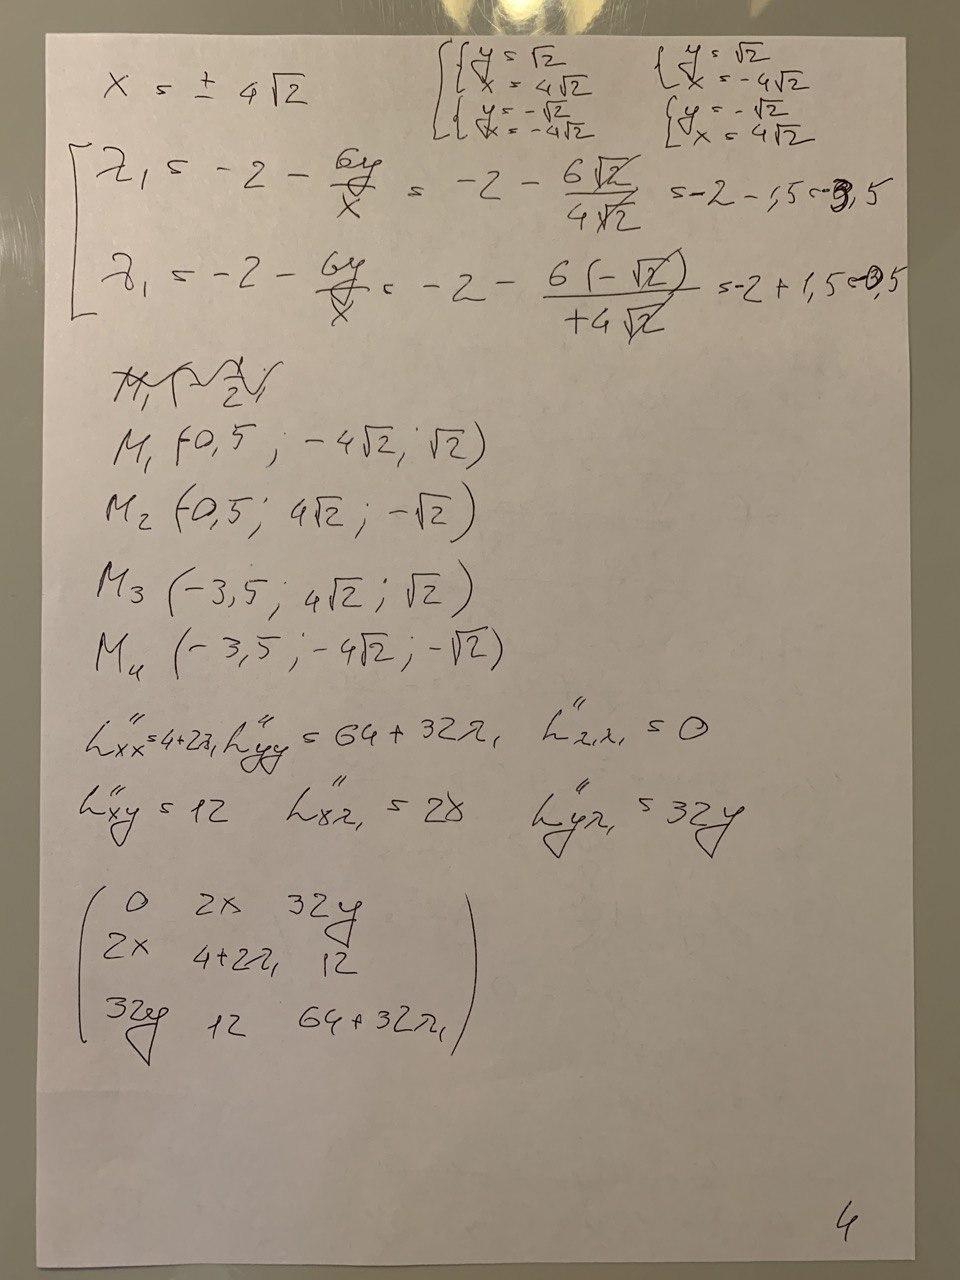 x = ± 4√2
{y = √2
x = 4√2
{y = -√2
x = -4√2
{y = √2
x = -4√2
{y = -√2
x = 4√2
λ₁ = -2 - 6y/x = -2 - 6√2/4√2 = -2 - 1,5 = -3,5
λ₁ = -2 - 6y/x = -2 - 6(-√2)/+4√2 = -2 + 1,5 = -0,5
M₁ (-0,5 ; -4√2; √2)
M₂ (-0,5; 4√2; -√2)
M₃ (-3,5; 4√2; √2)
M₄ (-3,5; -4√2; -√2)
L''xx = 4+2λ₁ L''yy = 64 + 32λ₁ L''λ₁λ₁ = 0
L''xy = 12 L''xλ₁ = 2x L''yλ₁ = 32y
0 2x 32y
2x 4+2λ₁ 12
32y 12 64 + 32λ₁
4